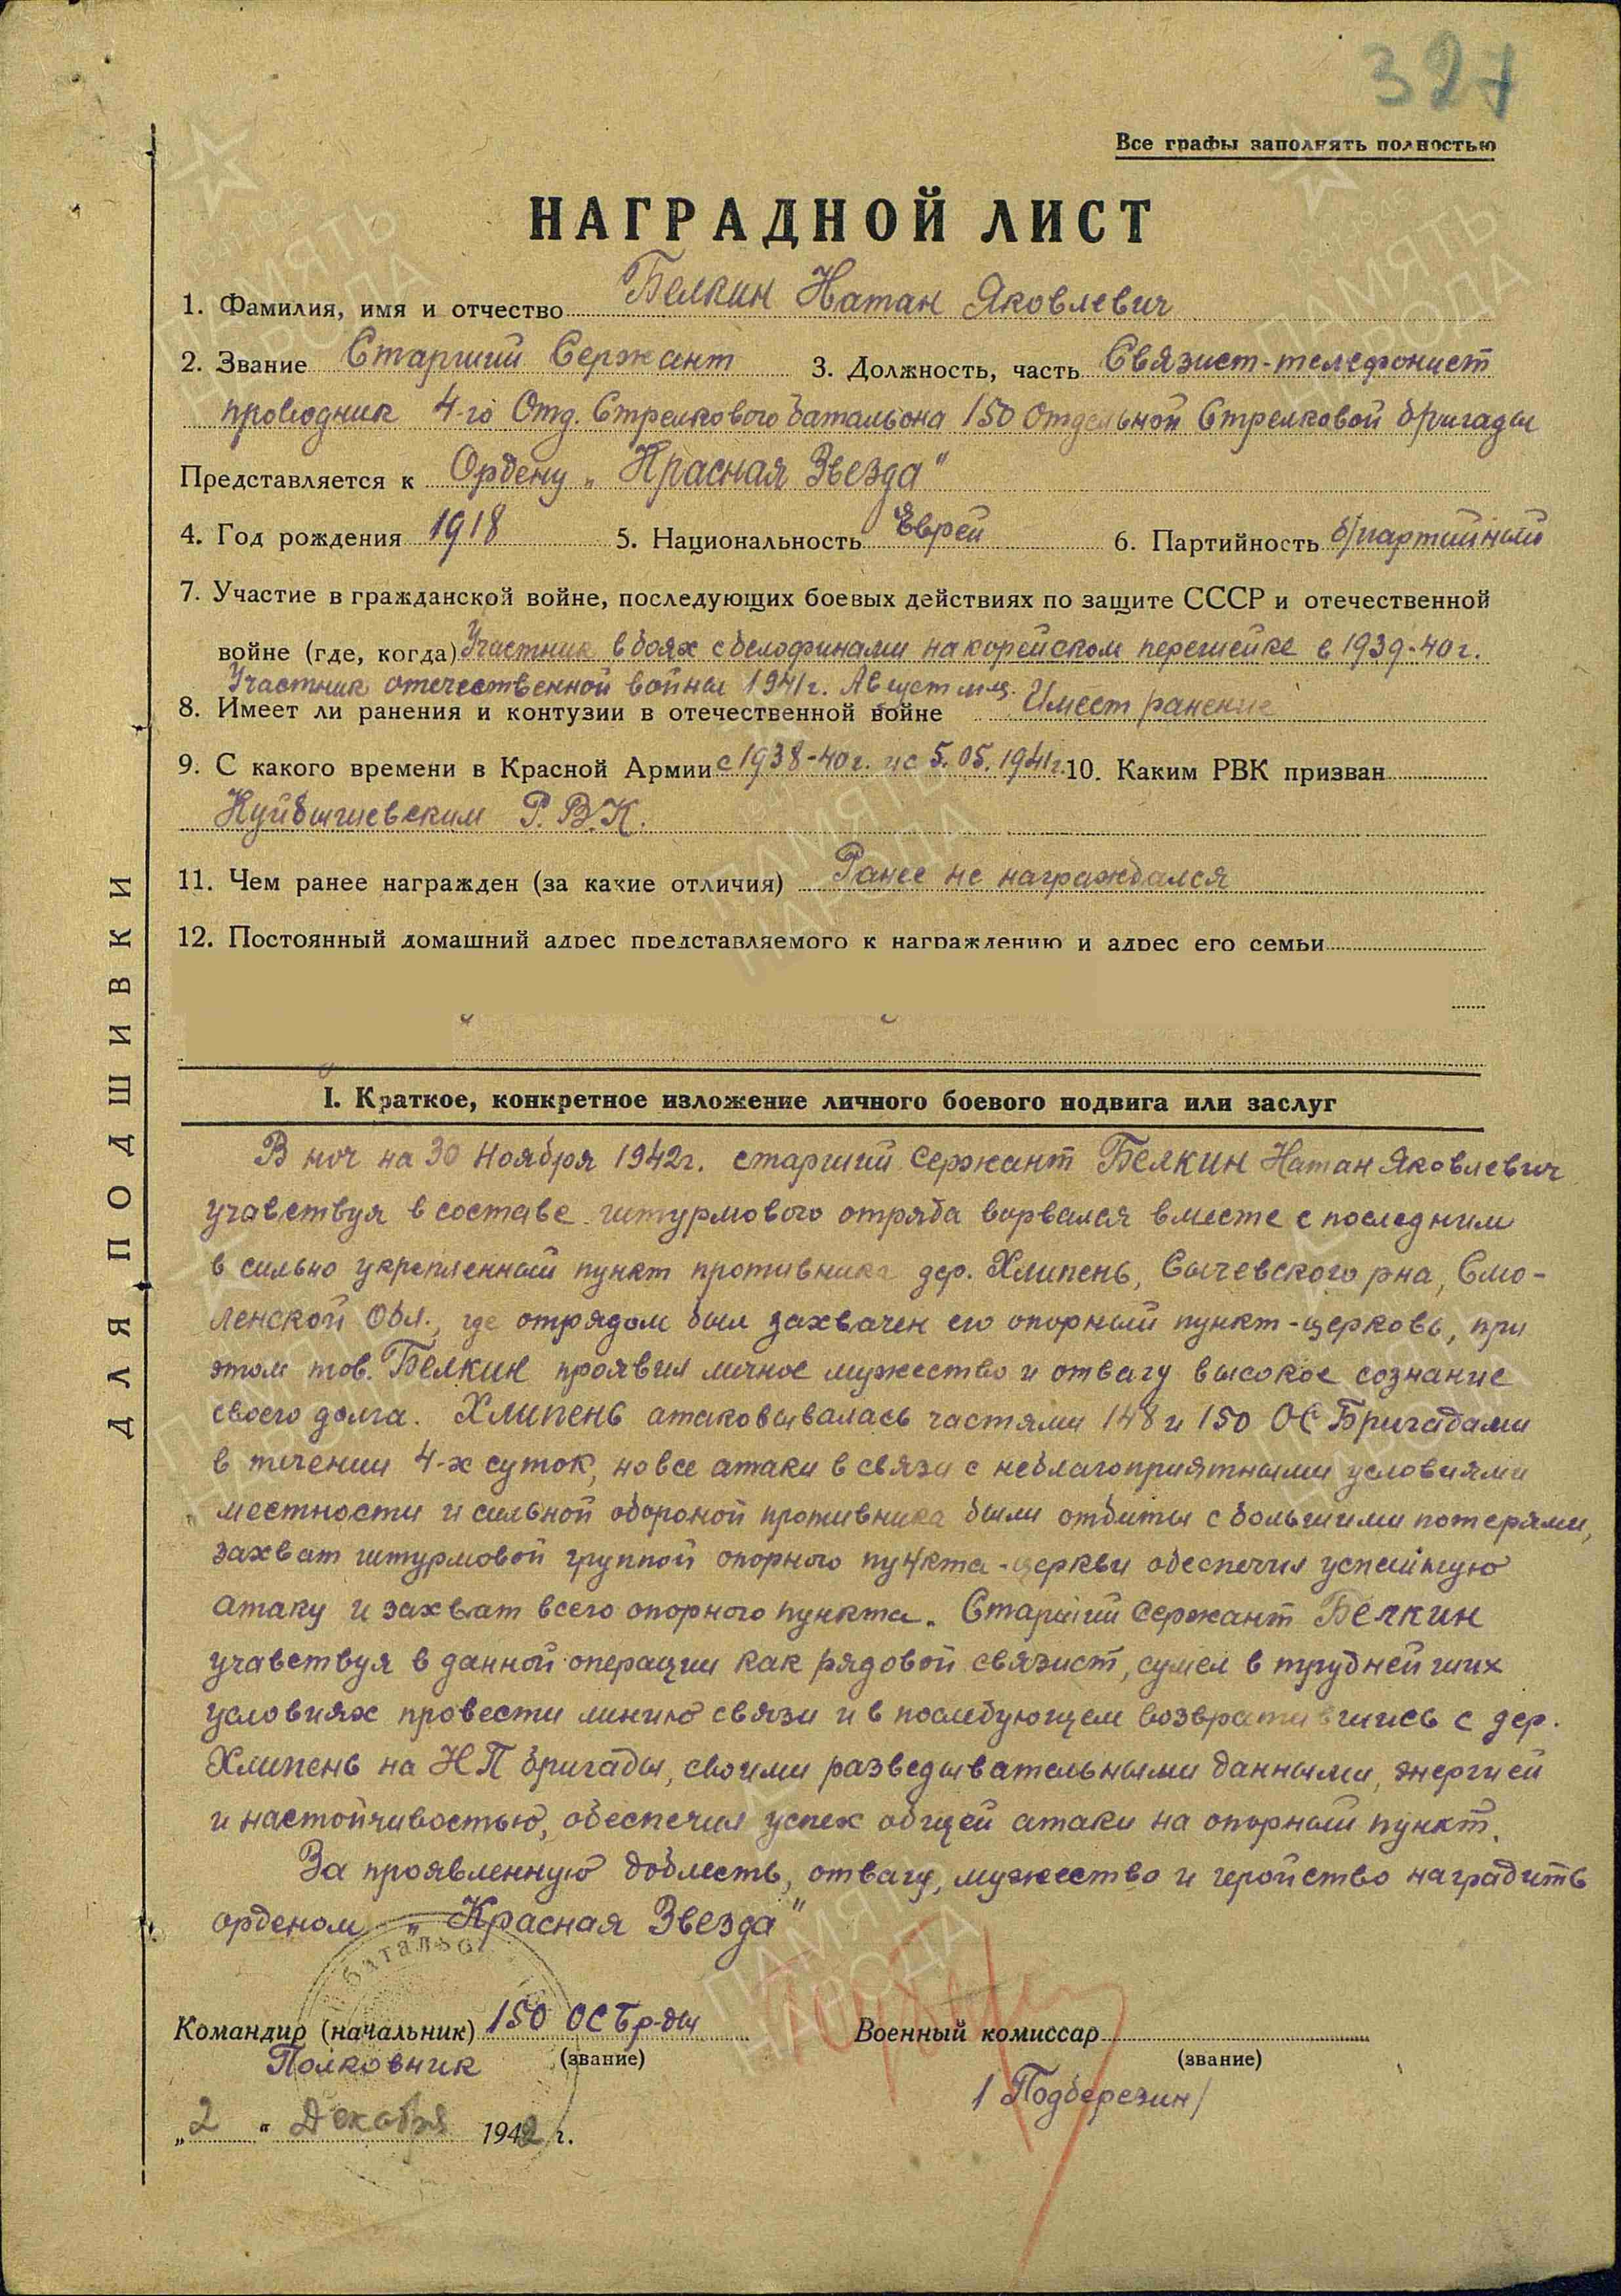 327
Все графы заполнять полностью
НАГРАДНОЙ ЛИСТ
1. Фамилия, имя и отчество Белкин Натан Яковлевич
2. Звание Старший Сержант 3. Должность, часть Связист-телефонист
проводник 4-го Отд. Стрелкового батальона 150 Отдельной Стрелковой бригады
Представляется к Ордену „Красная Звезда"
4. Год рождения 1918 5. Национальность Еврей 6. Партийность б/партийный
7. Участие в гражданской войне, последующих боевых действиях по защите СССР и отечественной
войне (где, когда) Участник в боях с белофинами на корейском перешейке в 1939-40 г.
Участник отечественной войны 1941 г. Август м-ц.
8. Имеет ли ранения и контузии в отечественной войне Имеет ранение
9. С какого времени в Красной Армии с 1938-40 г. и с 5.05.1941 г. 10. Каким РВК призван
Куйбышевским Р.В.К.
11. Чем ранее награжден (за какие отличия) Ранее не награждался
12. Постоянный домашний адрес представляемого к награждению и адрес его семьи
ДЛЯ ПОДШИВКИ
I. Краткое, конкретное изложение личного боевого подвига или заслуг
В ноч на 30 Ноября 1942 г. старший сержант Белкин Натан Яковлевич
учавствуя в составе штурмового отряда ворвался вместе с последним
в сильно укрепленный пункт противника дер. Хлипень, Сычевского р-на, Смо-
ленской Обл., где отрядом был захвачен его опорный пункт-церковь, при
этом тов. Белкин проявил личное мужество и отвагу высокое сознание
своего долга. Хлипень атаковывалась частями 148 и 150 ОС Бригадами
в течении 4-х суток, но все атаки в связи с неблагоприятными условиями
местности и сильной обороной противника были отбиты с большими потерями,
захват штурмовой группой опорного пункта-церкви обеспечил успешную
атаку и захват всего опорного пункта. Старший Сержант Белкин
учавствуя в данной операции как рядовой связист, сумел в труднейших
условиях провести линию связи и в последующем возвратившись с дер.
Хлипень на НП бригады, своими разведывательными данными, энергией
и настойчивостью, обеспечил успех общей атаки на опорный пункт.
За проявленную доблесть, отвагу, мужество и геройство наградить
орденом „Красная Звезда"
Командир (начальник) 150 ОСБр-ды Военный комиссар
Полковник (звание) (звание)
/Подберезин/
„2" Декабря 1942 г.
батальо
ПАМЯТЬ НАРОДА